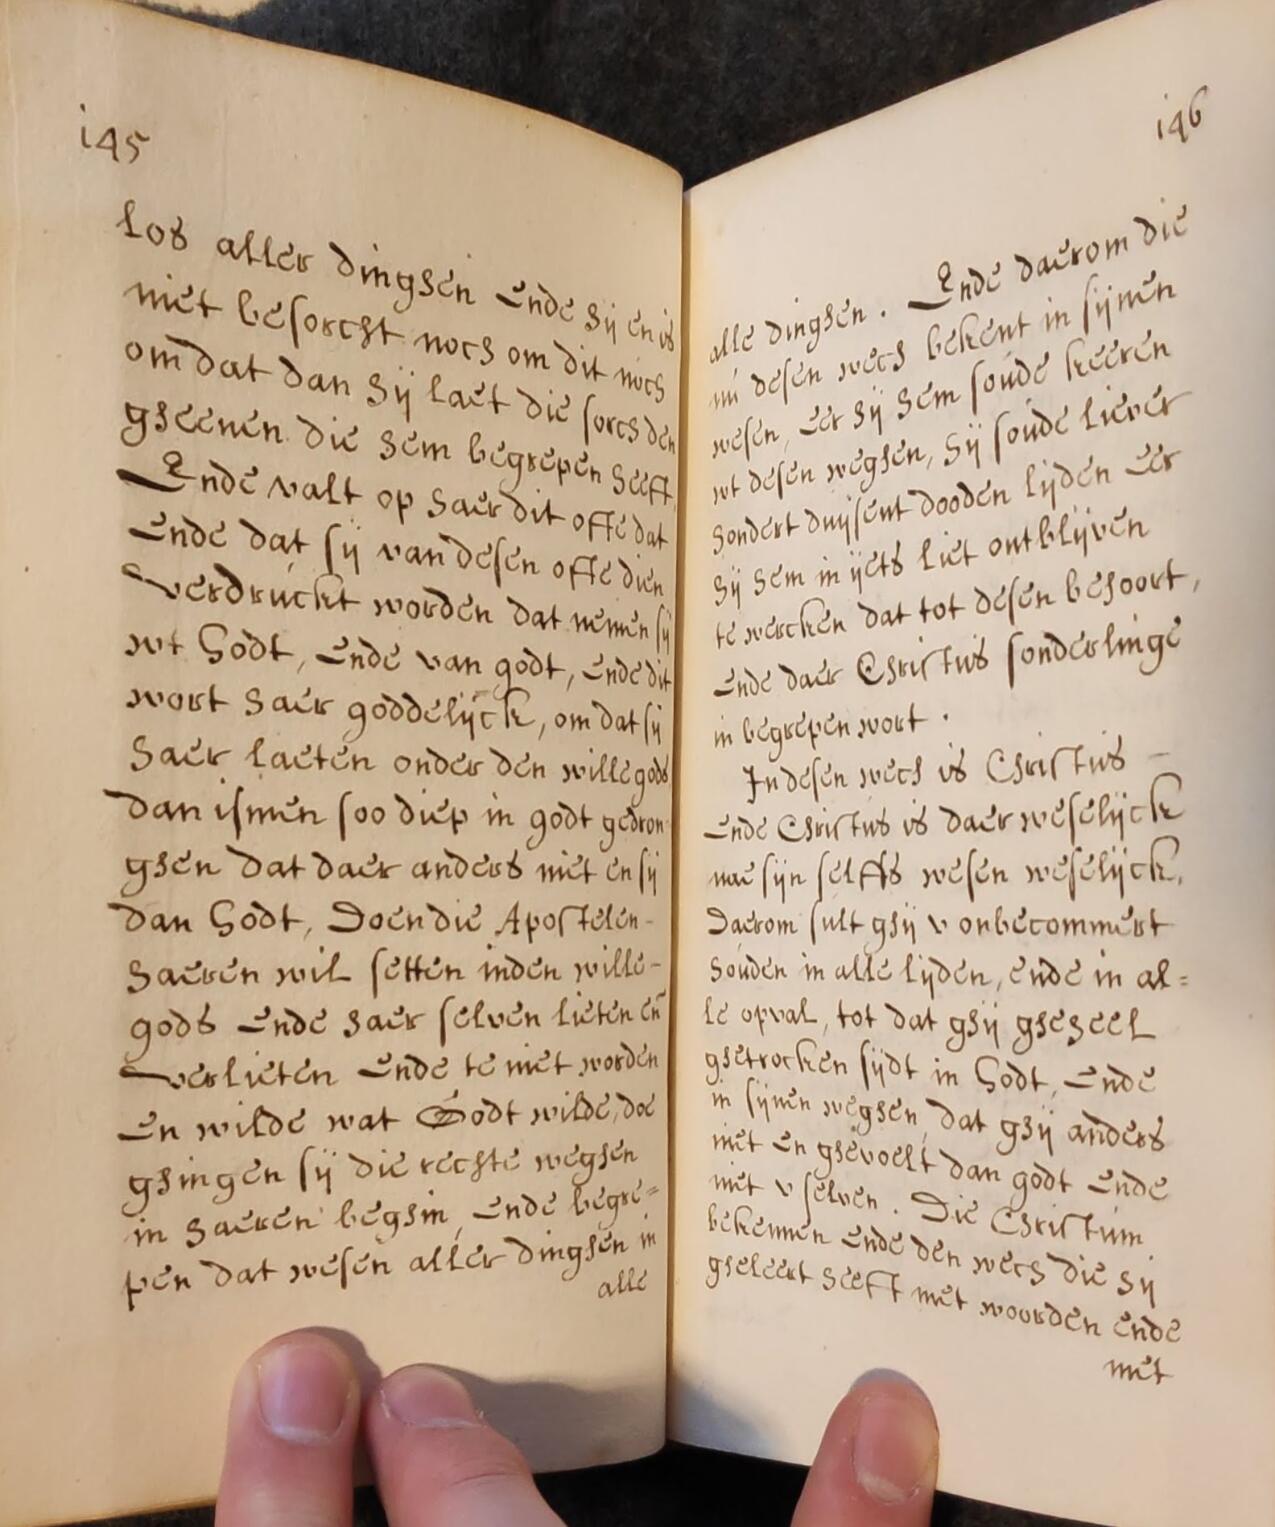 145
los aller dinghen ende hij en is
niet besorcht noch om dit noch
om dat dan hij laet die sorch den
gheenen die hem begrepen heeft,
Ende valt op haer dit offe dat
ende dat sij van desen offe dien
verdruckt worden dat nemen sij
wt Godt, ende van godt, ende dit
wort haer goddelijck, om dat sij
haer laeten onder den wille gods
dan ismen soo diep in godt gedron
ghen dat daer anders niet en sij
dan Godt, Doen die Apostelen -
haeren wil setten inden wille -
gods ende haer selven lieten en
verlieten ende te niet worden
en wilde wat Godt wilde, doe
ghingen sij die rechte weghen
in haeren beghin, ende begre=
pen dat wesen aller dinghen in
alle
146
alle dinghen . Ende daerom die
nu desen wech bekent in sijnen
wesen, eer hij hem soude keeren
wt desen weghen, hij soude liever
hondert duijsent dooden lijden eer
hij hem in ijets liet ontblijven
te wercken dat tot desen behoort,
ende daer Christus sonderlinge
in begrepen wort .
In desen wech is Christus -
ende Christus is daer weselijck
nae sijn selffs wesen weselijck,
Daerom sult ghij v onbecommert
houden in alle lijden, ende in al=
le opval, tot dat ghij gheheel
ghetrocken sijdt in Godt, ende
in sijnen weghen, dat ghij anders
niet en ghevoelt dan godt ende
niet v selven . Die Christum
bekennen ende den wech die hij
gheleert heeft met woorden ende
met